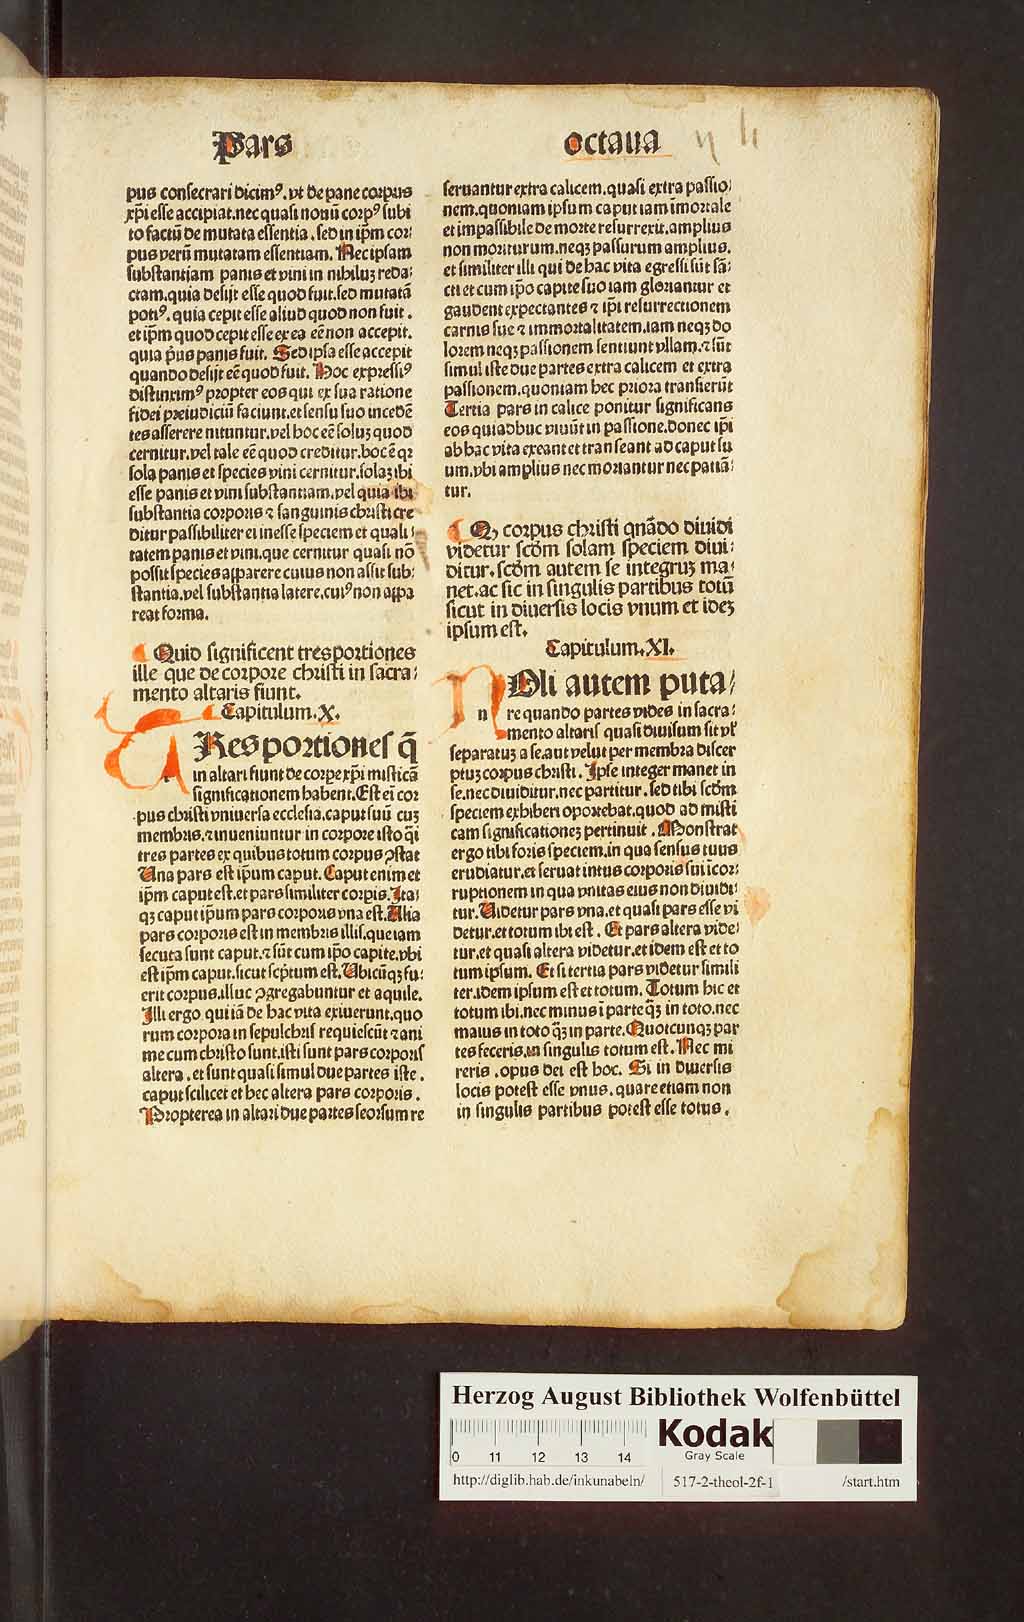 Pars
octaua
pus consecrari dicimꝰ. vt de pane corpus
xp̄i esse accipiat. nec quasi nouū corpꝰ subi
to factū de mutata essentia. sed in ip̄m cor⸗
pus verū mutatam essentiam. Nec ipsam
substantiam panis et vini in nihiluꝫ reda⸗
ctam. quia desijt esse quod fuit. sed mutatā
potiꝰ. quia cepit esse aliud quod non fuit.
et ip̄m quod cepit esse ex ea eē non accepit.
quia p̄us panis fuit. Sed ipsa esse accepit
quando desijt eē quod fuit. Hoc expressiꝰ
distinximꝰ propter eos qui ex sua ratione
fidei preiudiciū faciunt. et sensu suo incedē
tes asserere nituntur. vel hoc eē soluꝫ quod
cernitur. vel tale eē quod creditur. hoc ē qꝛ
sola panis et species vini cernitur. solaꝫ ibi
esse panis et vini substantiam. vel quia ibi
substantia corporis ⁊ sanguinis christi cre
ditur passibiliter ei inesse speciem et quali⸗
tatem panis et vini. que cernitur quasi nō
possit species apparere cuius non assit sub⸗
stantia. vel substantia latere. cuiꝰ non appa
reat forma.
Quid significent tres portiones
ille que de corpore christi in sacra⸗
mento altaris fiunt.
Capitulum. X.
TRes portiones q̄
in altari fiunt de corpe xp̄i misticā
significationem habent. Est eī cor
pus christi vniuersa ecclesia. caput suū cuꝫ
membris. ⁊ inueniuntur in corpore isto q̄i
tres partes ex quibus totum corpus ꝯstat
Una pars est ip̄um caput. Caput enim et
ip̄m caput est. et pars similiter corpis. Ita⸗
qꝫ caput ip̄um pars corporis vna est. Alia
pars corporis est in membris illis. que iam
secuta sunt caput. ⁊ sūt cum ip̄o capite. vbi
est ip̄m caput. sicut scp̄tum est. Ubicūqꝫ fu⸗
erit corpus. illuc ꝯgregabuntur et aquile.
Illi ergo qui iā de hac vita exiuerunt. quo
rum corpora in sepulchris requiescūt ⁊ ani
me cum christo sunt. isti sunt pars corporis
altera. et sunt quasi simul due partes iste.
caput scilicet et hec altera pars corporis.
Propterea in altari due partes seorsum re
seruantur extra calicem. quasi extra passio⸗
nem. quoniam ipsum caput iam īmortale
et impassibile de morte resurrexit. amplius
non moriturum. neqꝫ passurum amplius.
et similiter illi qui de hac vita egressi sūt sā⸗
cti et cum ip̄o capite suo iam gloriantur et
gaudent expectantes ⁊ ip̄i resurrectionem
carnis sue ⁊ immortalitatem. iam neqꝫ do
lorem neqꝫ passionem sentiunt vllam. ⁊ sūt
simul iste due partes extra calicem et extra
passionem. quoniam hec priora transierūt
Tertia pars in calice ponitur significans
eos qui adhuc viuūt in passione. donec ip̄i
ab hac vita exeant et transeant ad caput su
um. vbi amplius nec moriantur nec patiā⸗
tur.
Qꝫ corpus christi qn̄do diuidi
videtur scd̄m solam speciem diui⸗
ditur. scd̄m autem se integruꝫ ma⸗
net. ac sic in singulis partibus totū
sicut in diuersis locis vnum et ideꝫ
ipsum est.
Capitulum. XI.
NOli autem puta⸗
n re quando partes vides in sacra⸗
mento altaris quasi diuisum sit vl̓
separatuꝫ a se. aut velut per membra discer
ptuꝫ corpus christi. Ipse integer manet in
se. nec diuiditur. nec partitur. sed tibi scd̄m
speciem exhiberi oportebat. quod ad misti
cam significationeꝫ pertinuit. Monstrat
ergo tibi foris speciem. in qua sensus tuus
erudiatur. et seruat intus corporis sui īcor⸗
ruptionem in qua vnitas eius non diuidi⸗
tur. Uidetur pars vna. et quasi pars esse vi
detur. et totum ibi est. Et pars altera vide⸗
tur. et quasi altera videtur. et idem est et to
tum ipsum. Et si tertia pars videtur simili
ter. idem ipsum est et totum. Totum hic et
totum ibi. nec minus ī parte qꝫ̄ in toto. nec
maius in toto qꝫ̄ in parte. Quotcunqꝫ par
tes feceris. in singulis totum est. Nec mi
reris. opus dei est hoc. Si in diuersis
locis potest esse vnus. quare etiam non
in singulis partibus potest esse totus.
Herzog August Bibliothek Wolfenbüttel
Kodak
Gray Scale
0 11 12 13 14
http://diglib.hab.de/inkunabeln/ 517-2-theol-2f-1 /start.htm